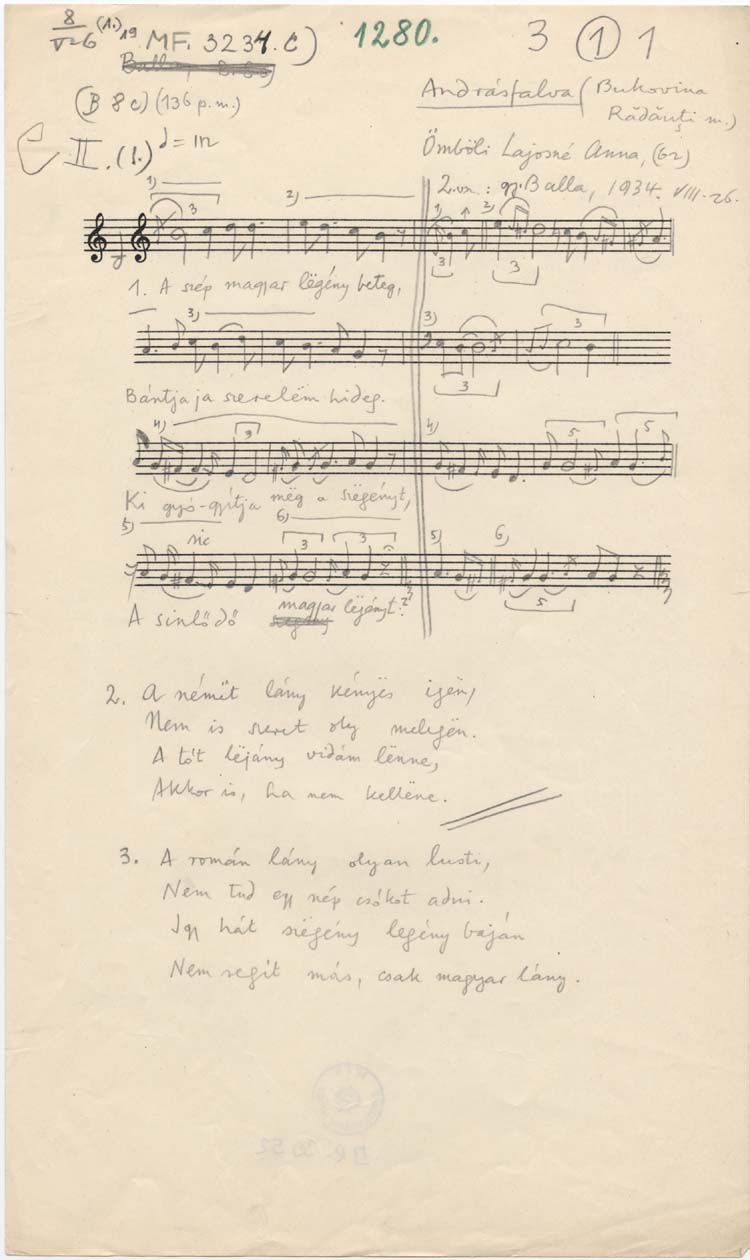 8 (1.) 19 MF. 3234. c) 1280. 3 1 1
V-6
(B 8c) (136 p.m.)
Andrásfalva (Bukovina
Rădăuţi m.)
C II. (1.)
Ömböli Lajosné Anna, (62)
2.vsz.: gy. Balla, 1934. VIII-26.
1) 3 2) 1) 2)
3 3
1. A szép magyar lëgény beteg,
3) 3) 3
3
Bántja ja szerelëm hideg.
4) 3 4) 5 5
Ki gyó-gyítja mëg a szëgényt,
5) sic 6) 3 3 5) 6)
5
A sinlődő magyar lëjényt?
2. A némett lány kényës igën,
Nem is szeret oly melegën.
A tót lëjány vidám lënne,
Akkor is, ha nem këllene.
3. A román lány olyan lusti,
Nem tud egy nép csókot adni.
Igy hát szëgény legény baján
Nem segít más, csak magyar lány.